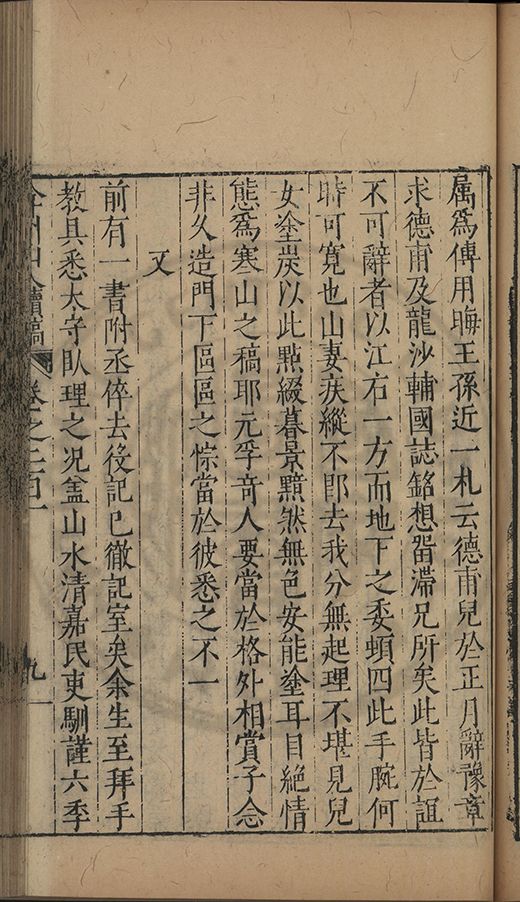 属爲傅用晦王孫近一札云德甫兒於正月辭豫章
求德甫及龍沙輔國誌銘想畱滯兄所矣此皆於誼
不可辭者以江右一方而地下之委頓四此手腕何
時可寛也山妻疾縱不卽去我分無起理不堪見兒
女塗炭以此㸃綴暮景黯然無色安能塗耳目絕情
態爲寒山之稿耶元孚竒人要當於格外相賞子念
非久造門下區區之悰當於彼悉之不一
又
前有一書附丞倅去役記已徹記室矣余生至拜手
教具悉太守臥理之况盖山水清嘉民吏馴謹六季
山人續稿 卷之二百一 九